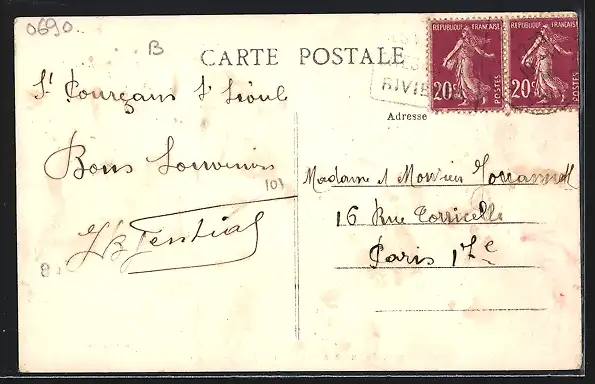 0690
B
CARTE POSTALE
RIVIE
REPUBLIQUE FRANÇAISE
20c
POSTES
REPUBLIQUE FRANÇAISE
20c
POSTES
Adresse
St Pourçain
Bons Souvenirs
103
Madame & Monsieur
16 Rue Torricelli
Paris 17e